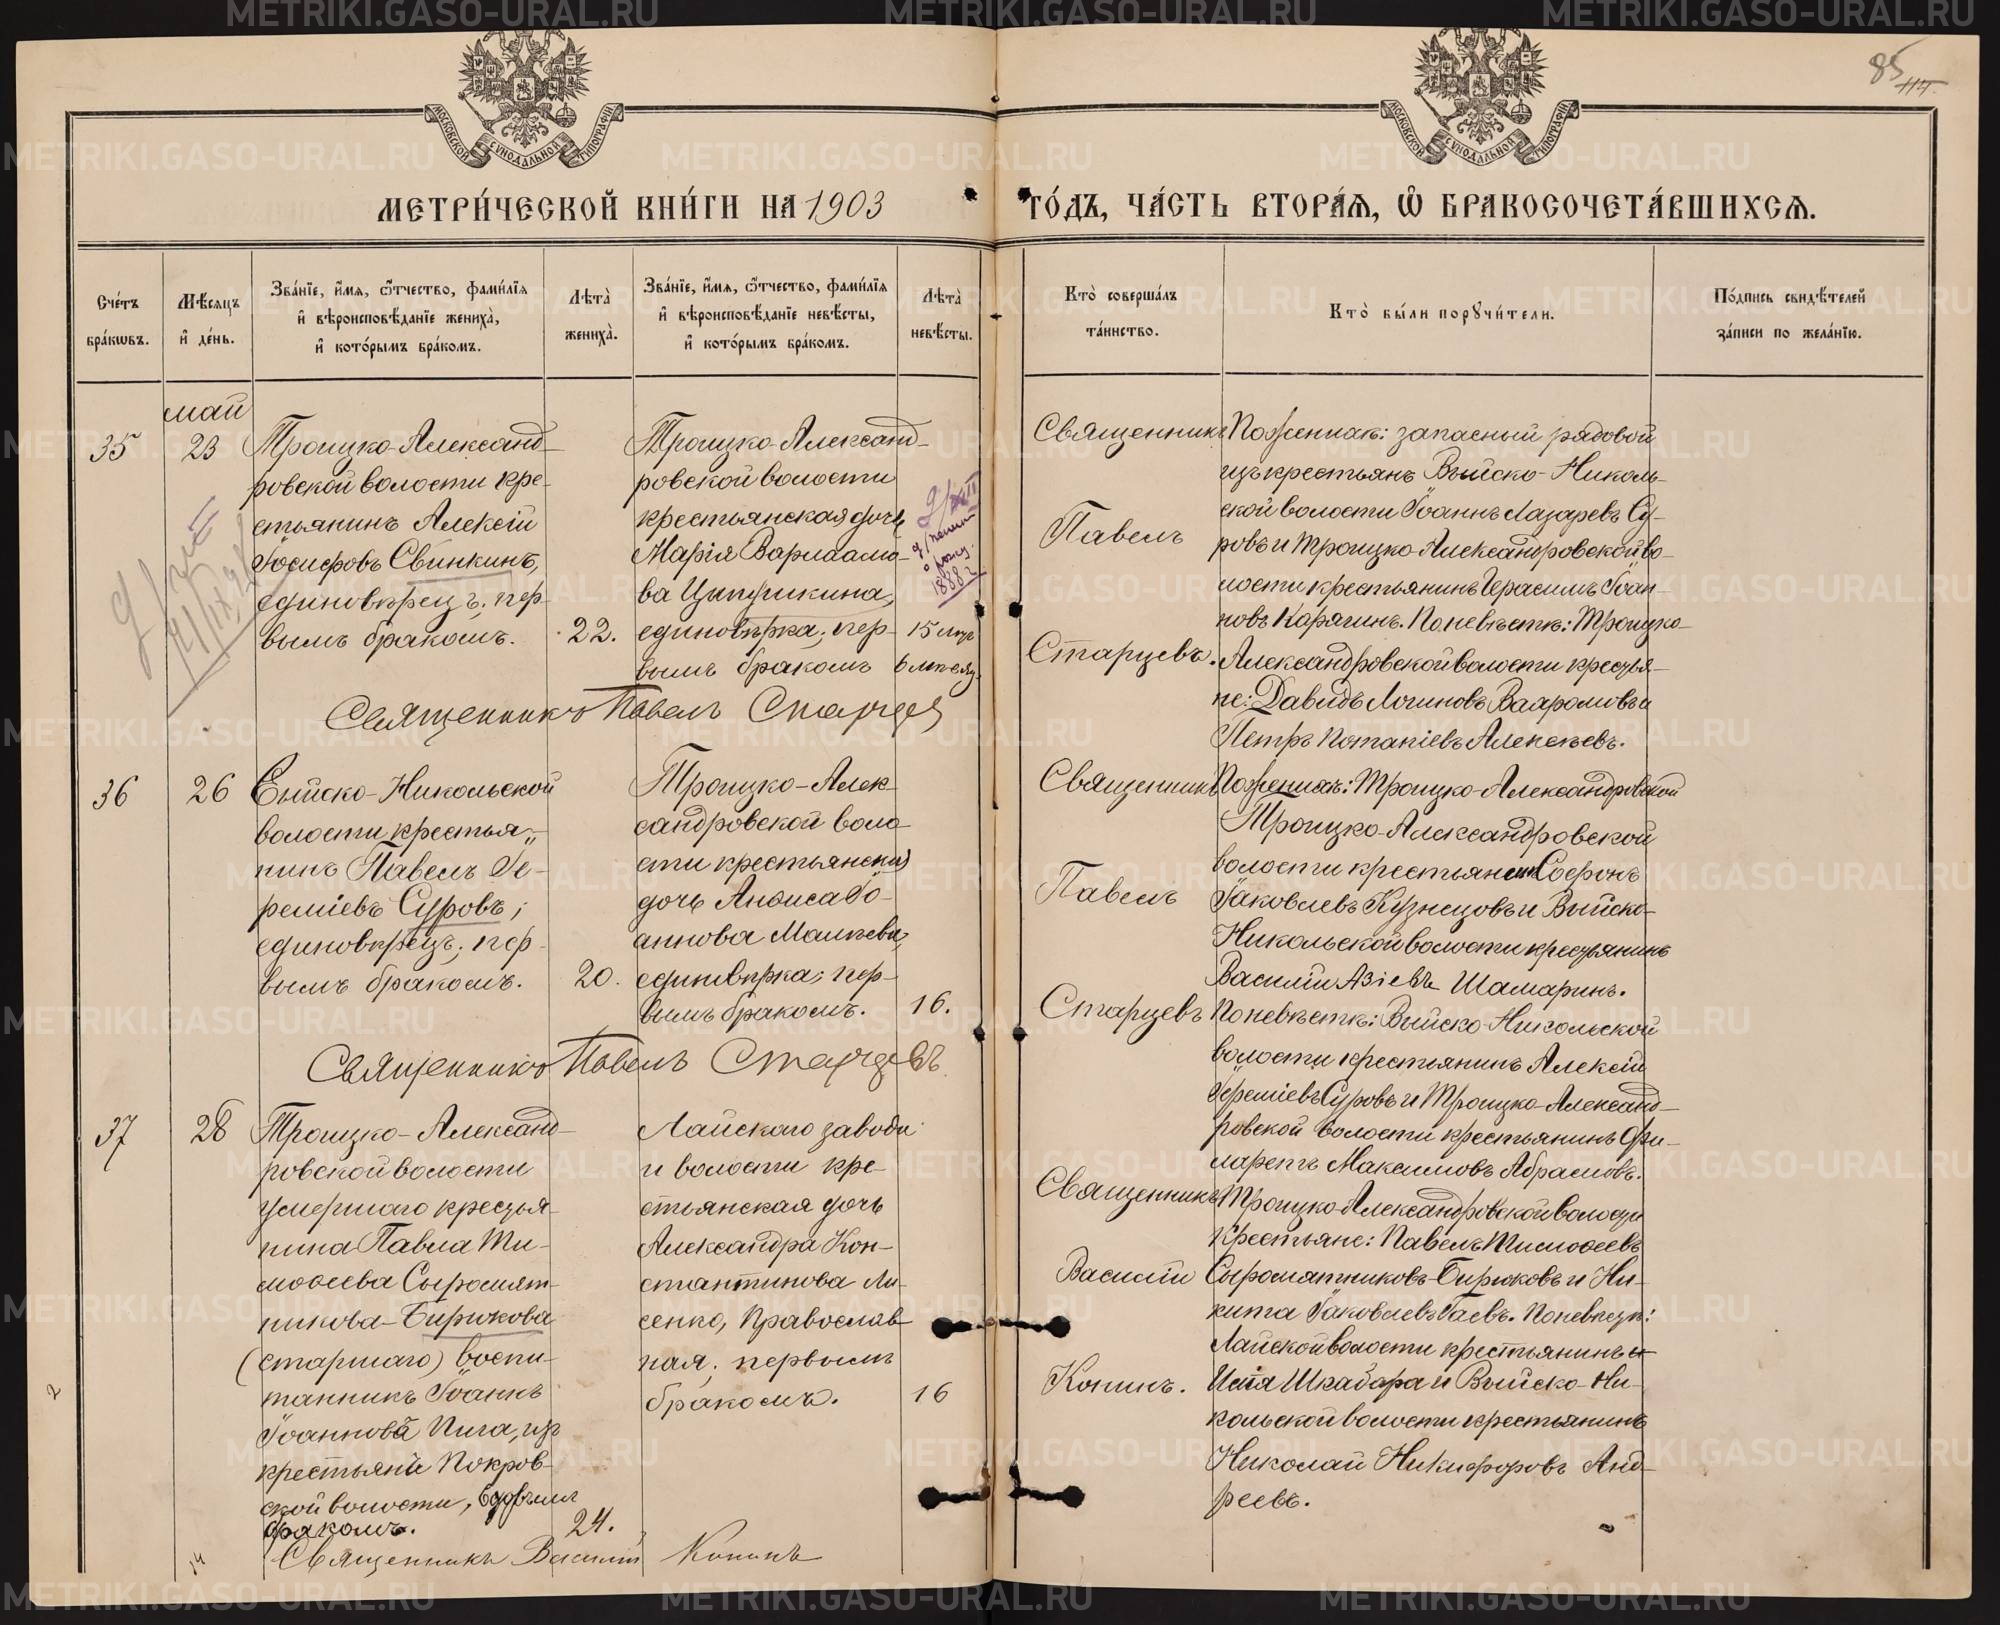 85
МОСКОВСКОЙ СѴНОДАЛЬНОЙ ТИПОГРАФІИ
МОСКОВСКОЙ СѴНОДАЛЬНОЙ ТИПОГРАФІИ
МЕТРИ́ЧЕСКОЙ КНИ́ГИ НА 1903
ГО́ДЪ, ЧА́СТЬ ВТОРА́Я, Ѡ҆ БРАКОСОЧЕТА́ВШИХСЯ.
Сче́тъ бра́кѡвъ.
Мѣ́сяцъ и҆ де́нь.
Зва́нїе, и҆́мя, ѻ҆́тчество, фами́лїя и҆ вѣроисповѣ́данїе жениха̀, и҆ кото́рымъ бра́комъ.
Лѣта̀ жениха̀.
Зва́нїе, и҆́мя, ѻ҆́тчество, фами́лїя и҆ вѣроисповѣ́данїе невѣ́сты, и҆ кото́рымъ бра́комъ.
Лѣта̀ невѣ́сты.
Кто̀ соверша́лъ та́инство.
Кто̀ бы́ли порꙋчи́тели.
По́дпись свидѣ́телей за́писи по жела́нїю.
май
35
23
Троицко-Александ-
ровской волости кре-
стьянинъ Алексій
Іосифовъ Свинкинъ,
единовѣрецъ; пер-
вымъ бракомъ.
22.
Троицко-Александ-
ровской волости
крестьянская дочь
Марія Варлаамо-
ва Ципушкина,
единовѣрка; пер-
вымъ бракомъ
1888 г
15 лѣтъ
6 мѣсяц.
Священникъ
Павелъ
Старцевъ.
По женихѣ: запасный рядовой
изъ крестьянъ Выйско-Николь-
ской волости Іоаннъ Лазаревъ Су-
ровъ и Троицко-Александровской во-
лости крестьянинъ Герасимъ Іоан-
новъ Карягинъ. По невѣстѣ: Троицко-
Александровской волости крестья-
не: Давидъ Логиновъ Вахромовъ и
Петръ Потапіевъ Алексѣевъ.
Священникъ Павелъ Старцевъ
36
26
Выйско-Никольской
волости крестья-
нинъ Павелъ Іе-
реміевъ Суровъ;
единовѣрецъ; пер-
вымъ бракомъ.
20.
Троицко-Алек-
сандровской воло-
сти крестьянская
дочь Анѳиса Іо-
аннова Малѣева,
единовѣрка; пер-
вымъ бракомъ.
16.
Священникъ
Павелъ
Старцевъ
По женихѣ: Троицко-Александровской
Троицко-Александровской
волости крестьянинъ Софронъ
Іаковлевъ Кузнецовъ и Выйско-
Никольской волости крестьянинъ
Василій Азіевъ Шамаринъ.
По невѣстѣ: Выйско-Никольской
волости крестьянинъ Алексій
Іереміевъ Суровъ и Троицко-Александ-
ровской волости крестьянинъ Фи-
ларетъ Максимовъ Абрамовъ.
Священникъ Павелъ Старцевъ.
37
28
Троицко-Александ-
ровской волости
умершаго крестья-
нина Павла Ти-
моѳеева Сыромят-
никова-Бирюкова
(старшаго) воспи-
танникъ Іоаннъ
Іоанновъ Пига, изъ
крестьянъ Покров-
ской волости, вдовымъ
бракомъ.
24.
Лайскаго завода
и волости кре-
стьянская дочь
Александра Кон-
стантинова Ли-
сенко, Православ-
ная, первымъ
бракомъ.
16
Священникъ
Василій
Копинъ.
Троицко-Александровской волости
крестьяне: Павелъ Тимоѳеевъ
Сыромятниковъ-Бирюковъ и Ни-
кита Іаковлевъ Гаевъ. По невѣстѣ:
Лайской волости крестьянинъ
Илія Шкабара и Выйско-Ни-
кольской волости крестьянинъ
Николай Никифоровъ Анд-
реевъ.
Священникъ Василій Копинъ
METRIKI.GASO-URAL.RU